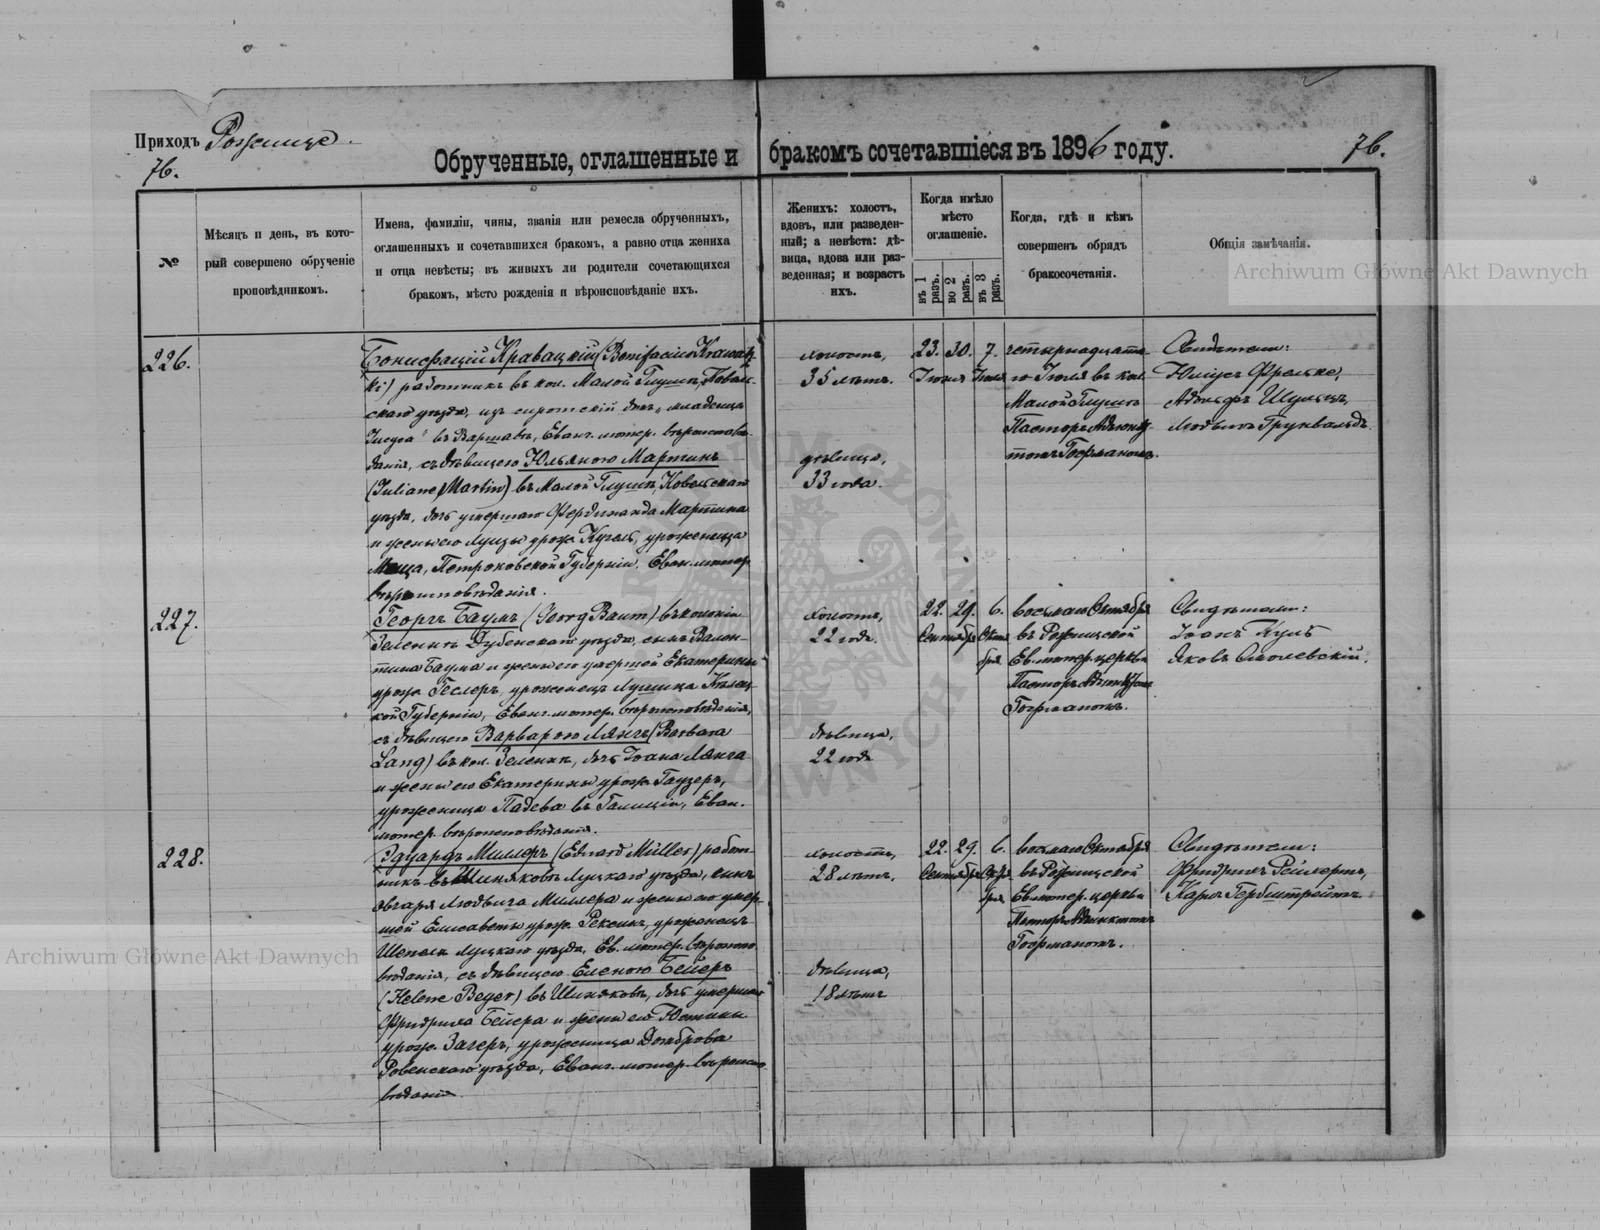 Приходъ Рожище.
76.
Обрученные, оглашенные и бракомъ сочетавшіеся въ 1896 году.
76.
№
Мѣсяцъ и день, въ кото-
рый совершено обрученіе
проповѣдникомъ.
Имена, фамиліи, чины, званія или ремесла обрученныхъ,
оглашенныхъ и сочетавшихся бракомъ, а равно отца жениха
и отца невѣсты; въ живыхъ ли родители сочетающихся
бракомъ, мѣсто рожденія и вѣроисповѣданіе ихъ.
Женихъ: холостъ,
вдовъ, или разведен-
ный; а невѣста: дѣ-
вица, вдова или раз-
веденная; и возрастъ
ихъ.
Когда имѣло
мѣсто
оглашеніе.
въ 1 разъ.
во 2 разъ.
въ 3 разъ.
Когда, гдѣ и кѣмъ
совершенъ обрядъ
бракосочетанія.
Общія замѣчанія.
Archiwum Główne Akt Dawnych
226.
Бонифацій Кравацкій (Bonifacius Krawatz-
ki) работникъ въ кол. Малой Глушѣ, Ковель-
скаго уѣзда, изъ сиротскій домъ „младенца
Іисуса" въ Варшавѣ, Еванг. лютер. вѣроисповѣ-
данія, съ дѣвицею Юльяною Мартинъ
(Juliane Martin) въ Малой Глушѣ, Ковельскаго
уѣзда, дочь умершаго Фердинанда Мартина
и жены его Луизы урож. Кугель, уроженица
Петроковской Губерніи, Еван. лютер.
вѣроисповѣданія.
холостъ,
35 лѣтъ.
дѣвица,
33 года.
23. 30. 7.
Іюня Іюля
четырнадцата-
го Іюля въ кол.
Малой Глушѣ
Пасторъ Адъюнк-
томъ Гофманомъ.
Свидѣтели:
Юліусъ Фрельке,
Адольфъ Шульцъ,
Людвигъ Грунвальдъ.
227.
Георгъ Баумъ (Georg Baum) въ колоніи
Зеленкѣ Дубенскаго уѣзда, сынъ Вален-
тина Баума и жены его умершей Екатерины
урож. Геслеръ, уроженецъ Кѣлец-
кой Губерніи, Еванг. лютер. вѣроисповѣданія,
съ дѣвицею Варварою Лянгъ (Barbara
Lang) въ кол. Зеленкѣ, дочь Іоана Лянга
и жены его Екатерины урож. Гаузеръ,
уроженица Падева въ Галиціи, Еван.
лютер. вѣроисповѣданія.
холостъ,
22 годъ.
дѣвица,
22 годъ
22. 29. 6.
Сентября Октя-
бря
восьмаго Октября
въ Рожищской
Ев. лютер. церкви
Пасторъ Адъюнктомъ
Гофманомъ.
Свидѣтели:
Іоанъ Куль
Яковъ Смолевскій.
228.
Эдуардъ Миллеръ (Eduard Müller) работ-
никъ въ Шиняковѣ Луцкаго уѣзда, сынъ
овчаря Людвига Миллера и жены его умер-
шей Елисаветы урож. уроженецъ
Шепеля Луцкаго уѣзда, Ев. лютер. вѣроиспо-
вѣданія, съ дѣвицею Еленою Бейеръ
(Helene Beyer) въ Шиняковѣ, дочь умершаго
Фридриха Бейера и жены его Юстины
урож. Загеръ, уроженица Домброва
Ровенскаго уѣзда, Еванг. лютер. вѣроиспо-
вѣданія.
холостъ,
28 лѣтъ.
дѣвица,
18 лѣтъ
22. 29. 6.
Сентября Октя-
бря
восьмаго Октября
въ Рожищской
Ев. лютер. церкви
Пасторъ Адъюнктомъ
Гофманомъ.
Свидѣтели:
Фридрихъ Реймертъ,
Карлъ Гербштрейтъ.
Archiwum Główne Akt Dawnych